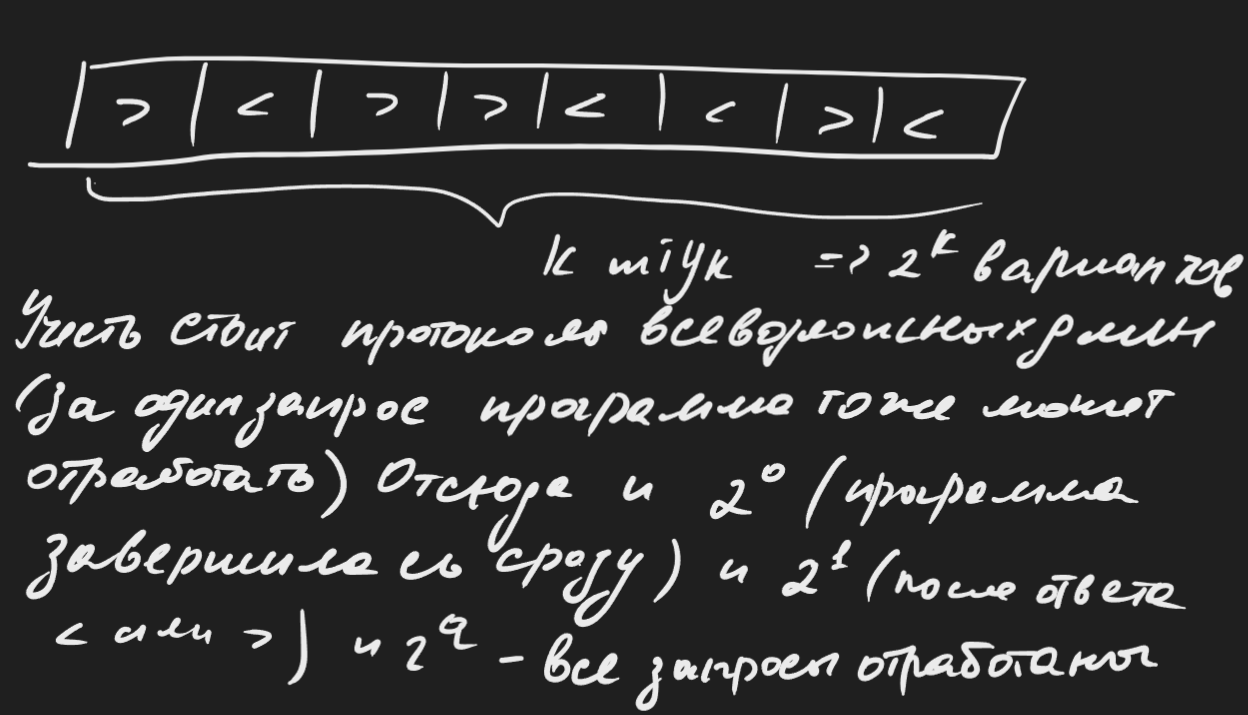 | > | < | > | > | < | < | > | <
k штук => 2^k вариантов
Учесть стоит протокола всевозможных длин
(за один запрос программа тоже может
отработать) Отсюда и 2^0 (программа
завершилась сразу) и 2^1 (после ответа
< или >) и 2^q - все запросы отработаны